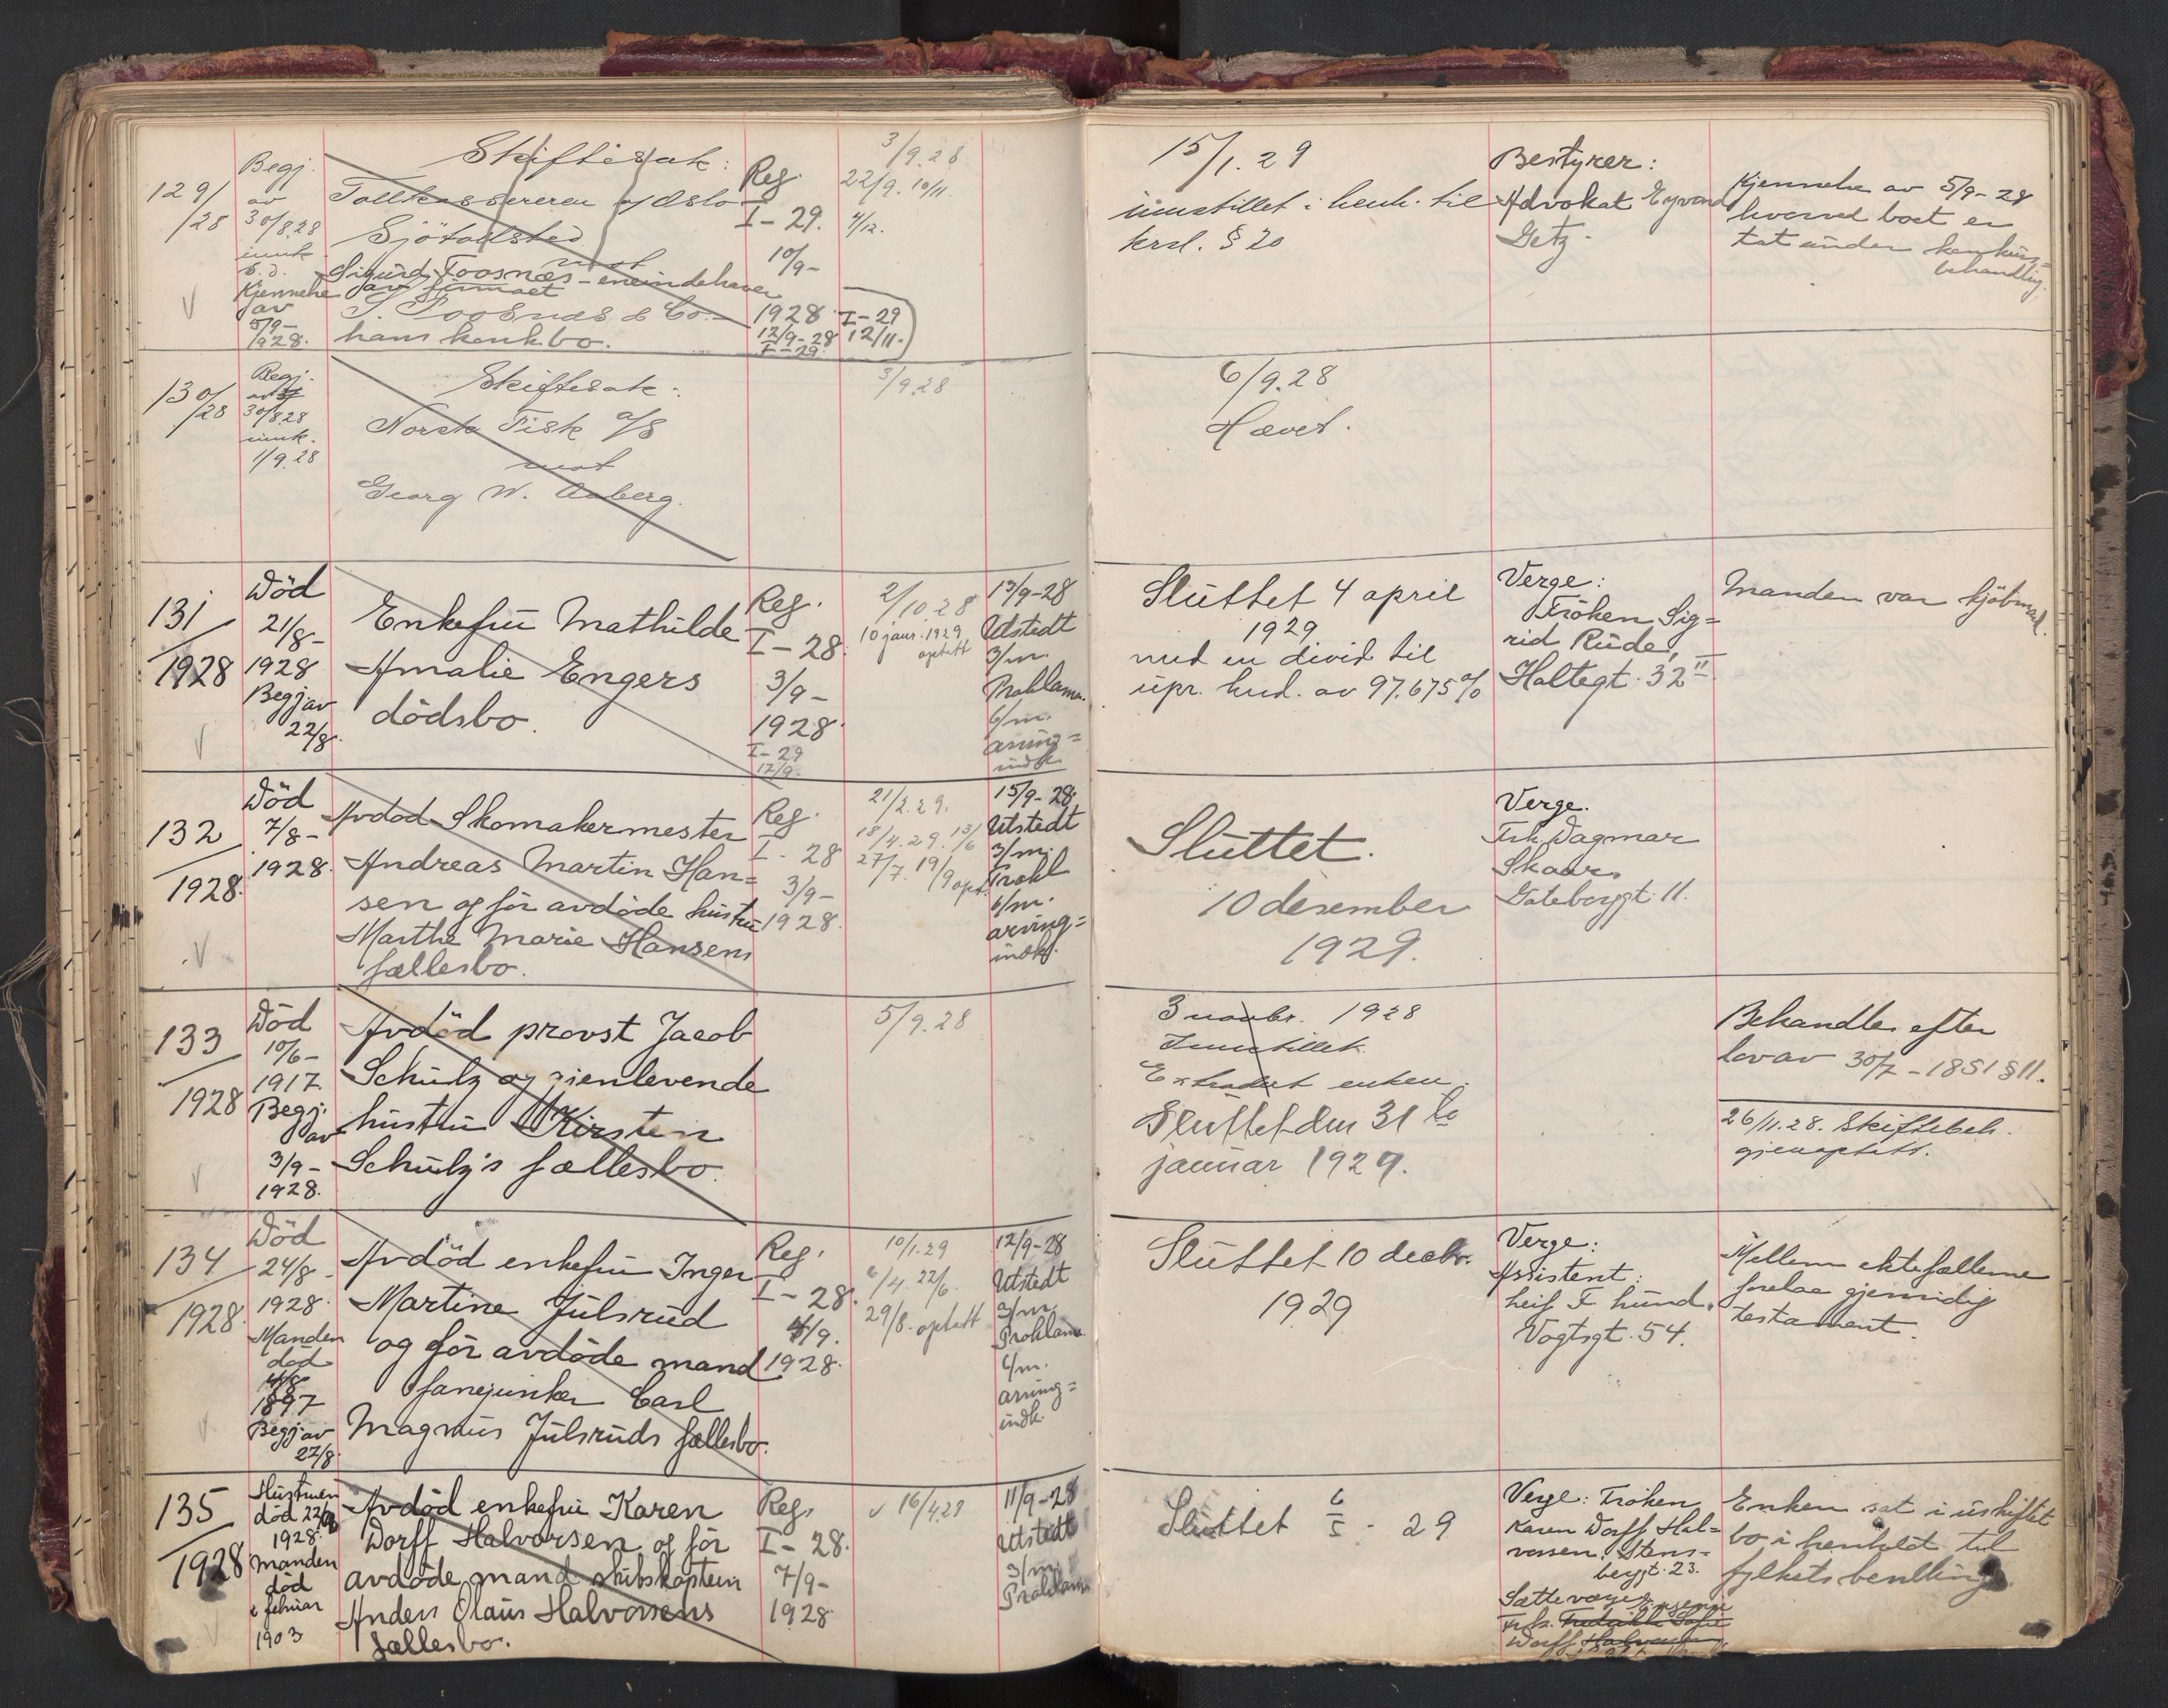 129/
/28
Begj.
av
30/8.28
innk
s.d.
Kjennelse
av
5/9-
1928.
Skiftesak:
Tollkassereren i Oslo
Sjötollsted
mot
Sigurd Foosnæs - eneindehaver
av firmaet
S. Foosnæs & Co. -
hans konk.bo.
Reg.
I-29.
10/9-
1928
12/9-28
I-29.
3/9.28
22/9. 10/11.
4/12.
I-29
12/11.
15/1.29
innstillet i henh. til
krsl. § 20
Bestyrer:
Advokat Eyvind
Getz.
Kjennelse av 5/9-28
hvorved boet er
tat under konkurs=
behandling.
130/
/28
Begj.
av
30/8.28
innk.
1/9.28
Skiftesak:
Norsk Fisk A/S
mot
Georg W. Aaberg.
3/9.28
6/9.28
Hævet.
131
1928
Död
21/8-
1928
Begj av
22/8.
Enkefru Mathilde
Amalie Engers
dödsbo.
Reg.
I-28.
3/9-
1928.
I-29
12/9.
2/10.28
10 janr. 1929
optatt
13/9-28
Utstedt
3/m.
Proklama.
6/m.
arving=
indk.
Sluttet 4 april
1929
med en divid til
upr. kred. av 97.675%
Verge:
Fröken Sig=
rid Rude,
Holtegt. 32 II
Manden var kjöbmd.
132
1928.
Död
7/8-
1928.
Avdöd Skomakermester
Andreas Martin Han=
sen og för avdöde hustru
Marthe Marie Hansens
fællesbo.
Reg.
I-28
3/9-
1928.
21/2.29.
18/4.29. 13/6
27/7. 19/9 opt.
15/9-28
Utstedt
3/m.
Prokl
6/m.
arving=
indk.
Sluttet.
10 desember
1929.
Verge.
Frk. Dagmar
Skaar
Gøteborggt. 11.
133
1928
Död
10/6-
1917.
Begj.
av
3/9-
1928.
Avdöd provst Jacob
Schulz og gjenlevende
hustru Kirsten
Schulz's fællesbo.
5/9.28
3 novbr. 1928
Innstillet.
Extradert enken.
Sluttet den 31 te
januar 1929.
Behandles efter
lov av 30/7-1851 § 11.
26/11.28. Skiftebeh.
gjenoptatt.
134
1928.
Död
24/8-
1928.
Manden
död
1897
Begj av
27/8.
Avdöd enkefru Inger
Martine Julsrud
og för avdöde mand
fanejunker Carl
Magnus Julsruds fællesbo.
Reg.
I-28.
4/9.
1928.
10/1.29
6/4. 22/6.
29/8. optatt
12/9-28
Utstedt
3/m.
Proklama.
6/m.
arving=
indk.
Sluttet 10 decbr.
1929
Verge:
Assistent:
Leif F. Lund.
Vogtsgt. 54.
Mellem ektefællerne
forelaa gjensidig
testament.
135
1928
Hustruen
död
1928.
Manden
död
i februar
1903
Avdöd enkefru Karen
Dorff Halvorsen og för
avdöde mand skibskaptein
Anders Olaus Halvorsens
fællesbo.
Reg.
I-28.
7/9-
1928
16/4.29
11/9-28
Utstedt
3/m
Proklama
Sluttet 6/5 - 29
Verge: Fröken
Karen Dorff Hal=
vorsen. Stens=
berggt. 23.
Sætteverge:
Frk. Fredrikke Sofie
Dorff Halvorsen
Enken sat i uskiftet
bo i henhold til
fylkets bevilling